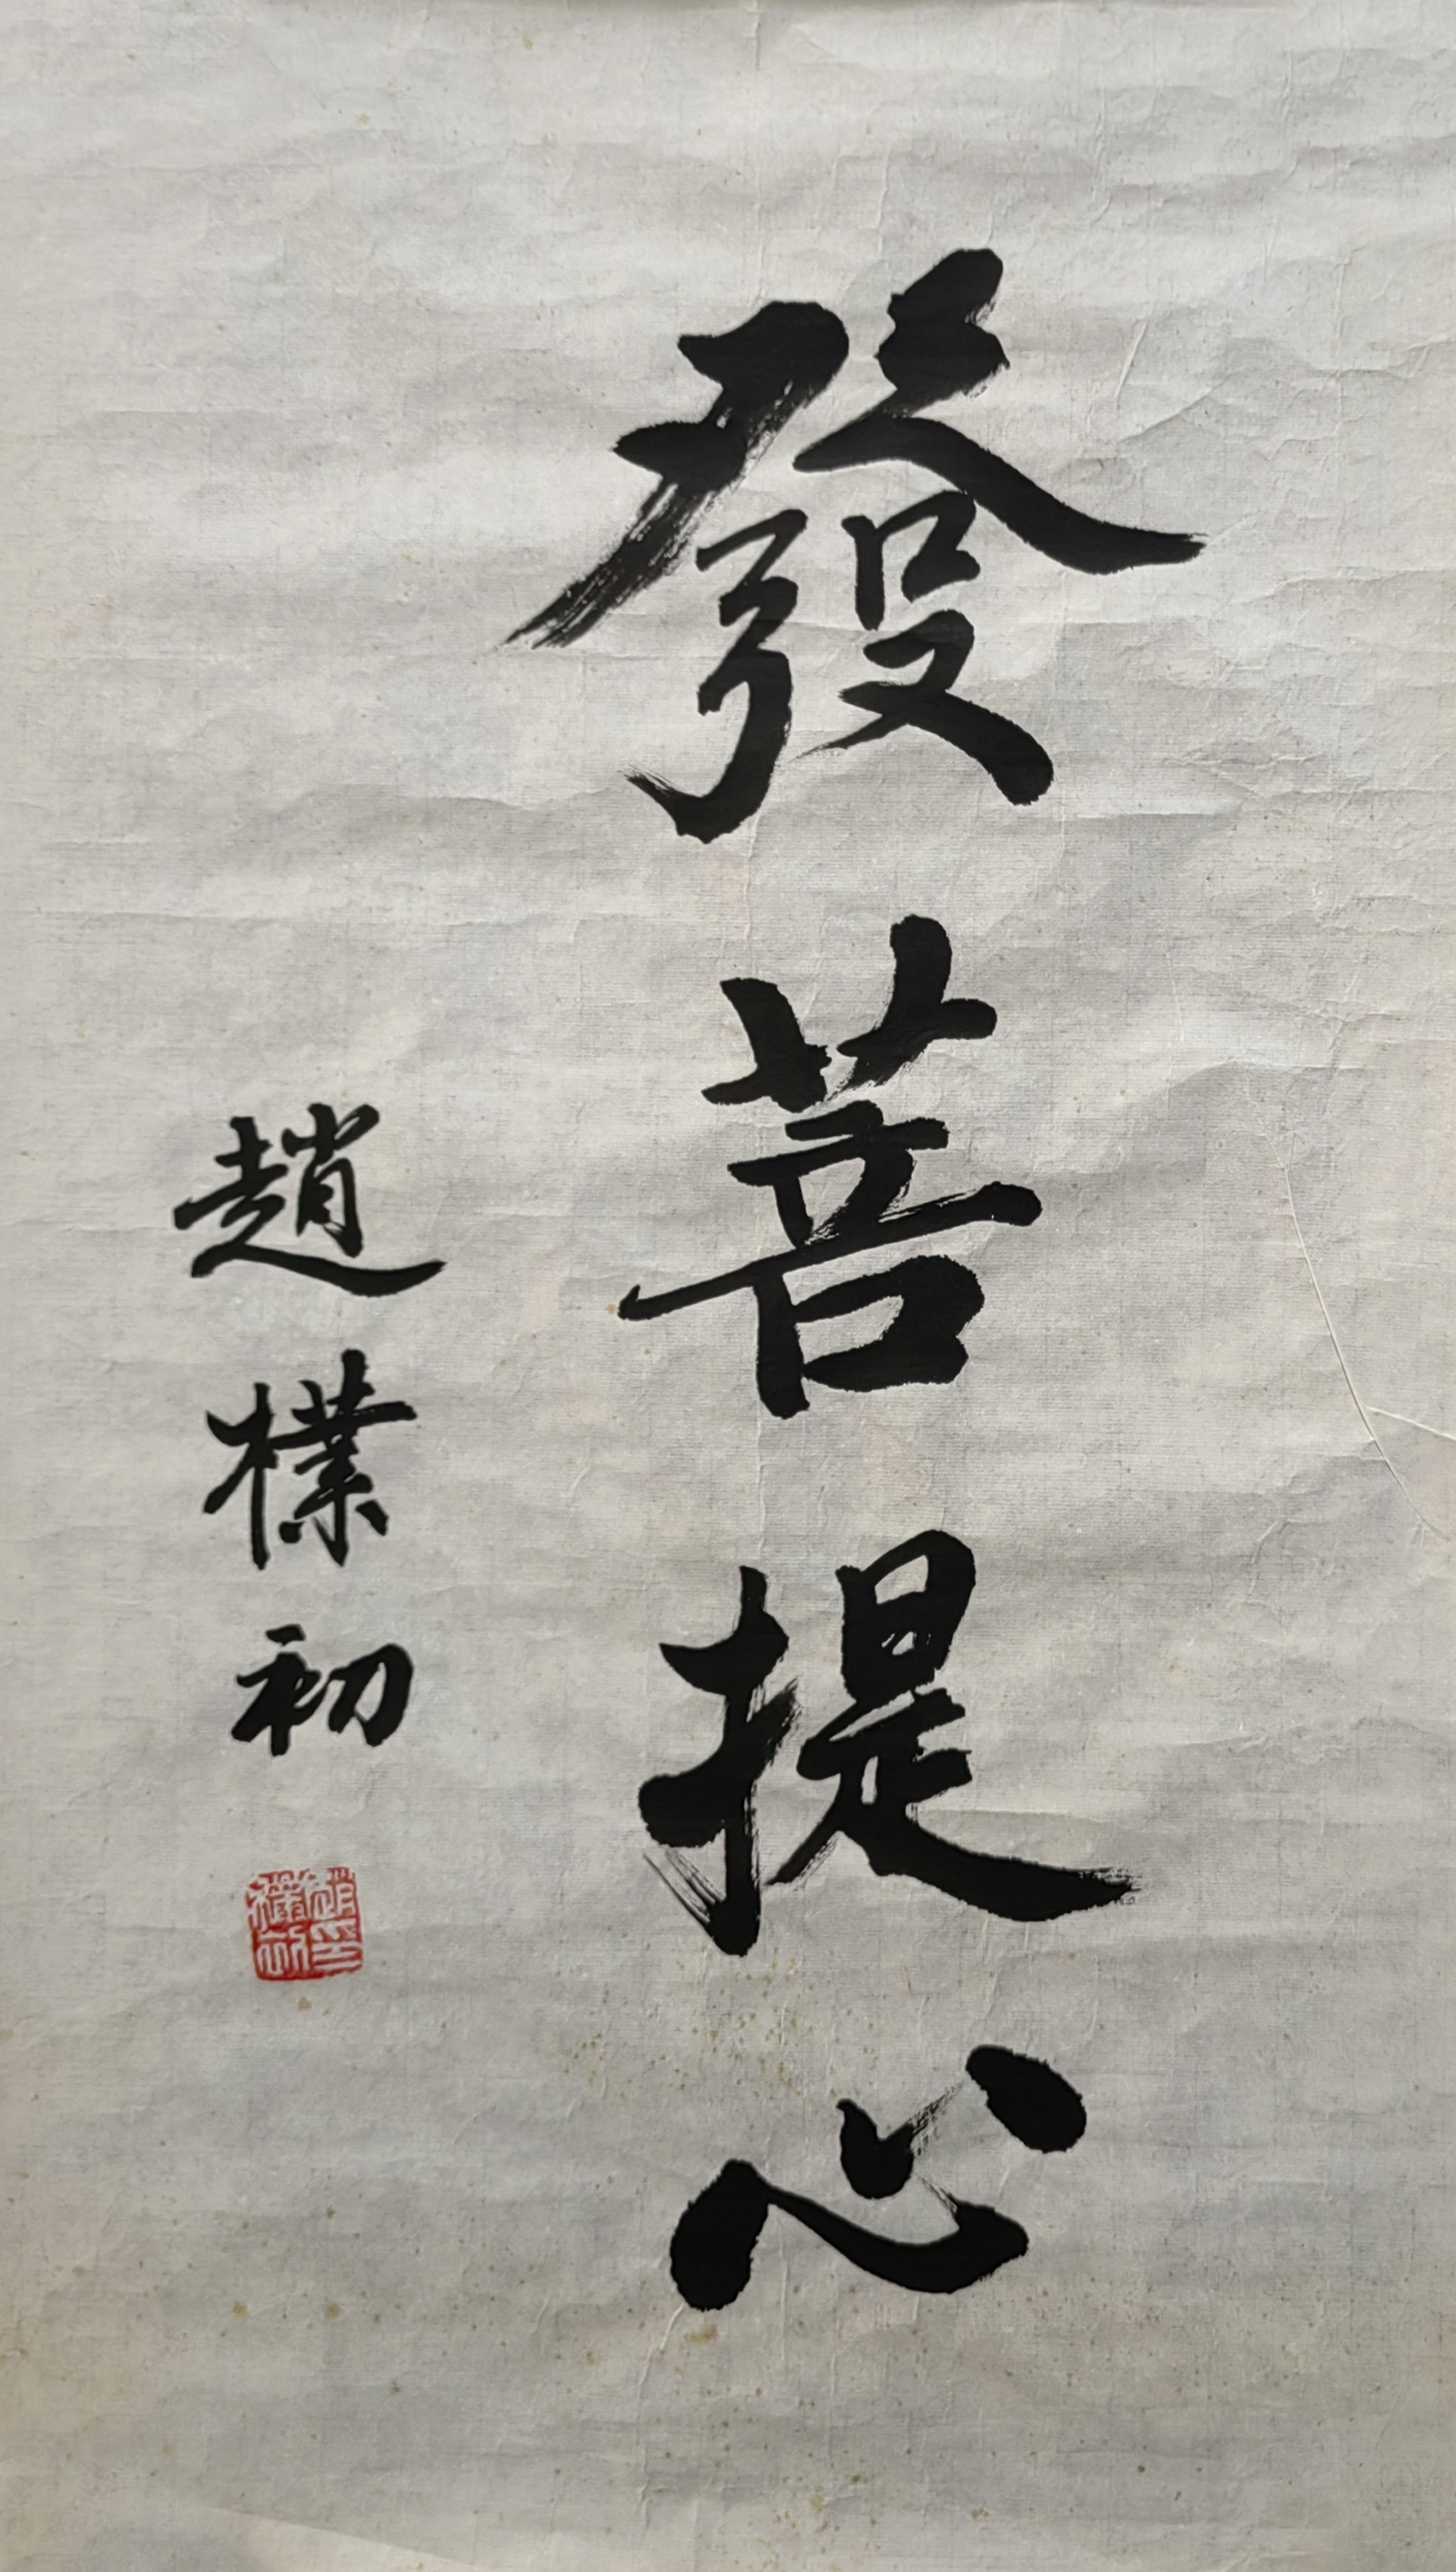 發菩提心
趙樸初
趙樸初印